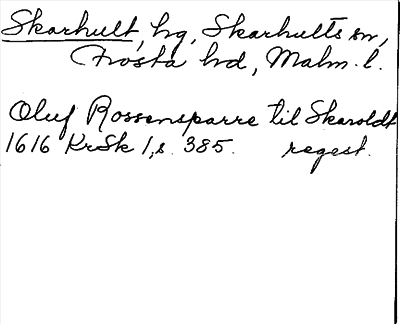 Skarhult, hg, Skarhults sn,
Frosta hd, Malm. l.
Oluf Rossensparre til Skaroldt
1616 KrSk 1, s. 385. regest.